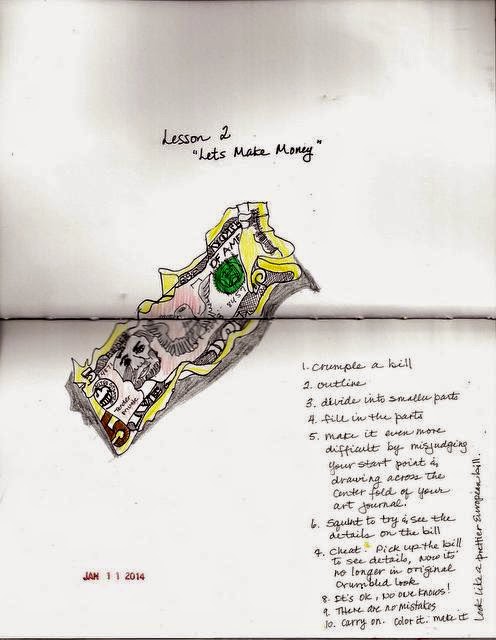 Lesson 2
"Lets Make Money"
OF AME
Tender
Private
1. crumple a bill
2. outline
3. divide into smaller parts
4. fill in the parts
5. make it even more
difficult by misjudging
your start point &
drawing across the
center fold of your
art journal.
6. Squint to try & see the
details on the bill
7. Cheat. Pick up the bill
to see details, now its
no longer in original
crumbled look
8. It's ok, no one knows!
9. There are no mistakes
10. Carry on. Color it. make it
look like a prettier European bill.
JAN 11 2014